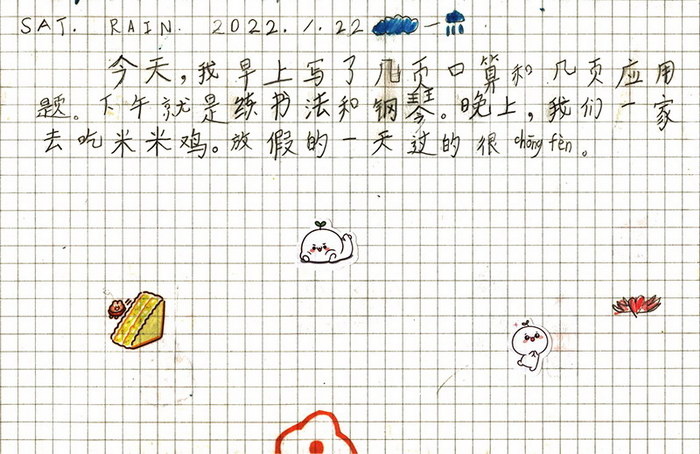 SAT. RAIN. 2022.1.22
今天,我早上写了几页口算和几页应用
题。下午就是练书法和钢琴。晚上,我们一家
去吃米米鸡。放假的一天过的很chōng fèn。